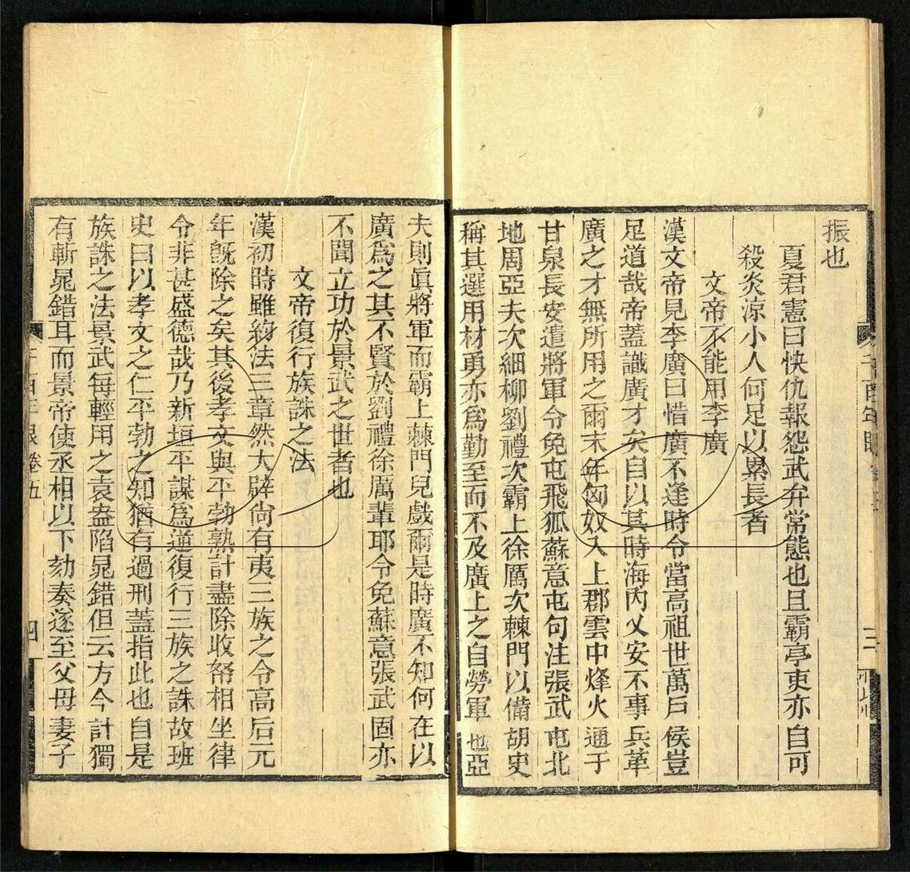 振也
夏君憲曰快仇報怨武弁常態也且霸亭吏亦自可
殺炎涼小人何足以累長者
文帝不能用李廣
漢文帝見李廣曰惜廣不逢時令當高祖世萬戶侯豈
足道哉帝蓋識廣才矣自以其時海內乂安不事兵革
廣之才無所用之爾末年匈奴入上郡雲中烽火通于
甘泉長安遣將軍令免屯飛狐蘇意屯句注張武屯北
地周亞夫次細柳劉禮次霸上徐厲次棘門以備胡史
稱其選用材勇亦為勤至而不及廣上之自勞軍也亞
夫則眞將軍而霸上棘門兒戲爾是時廣不知何在以
廣為之其不賢於劉禮徐厲輩耶令免蘇意張武固亦
不聞立功於景武之世者也
文帝復行族誅之法
漢初時雖約法三章然大辟尙有夷三族之令高后元
年旣除之矣其後孝文與平勃熟計盡除收帑相坐律
令非甚盛德哉乃新垣平謀為道復行三族之誅故班
史曰以孝文之仁平勃之知猶有過刑蓋指此也自是
族誅之法景武每輕用之袁盎陷晁錯但云方今計獨
有斬晁錯耳而景帝使丞相以下劾奏遂至父母妻子
千百年眼 卷五
四
千百年眼
三